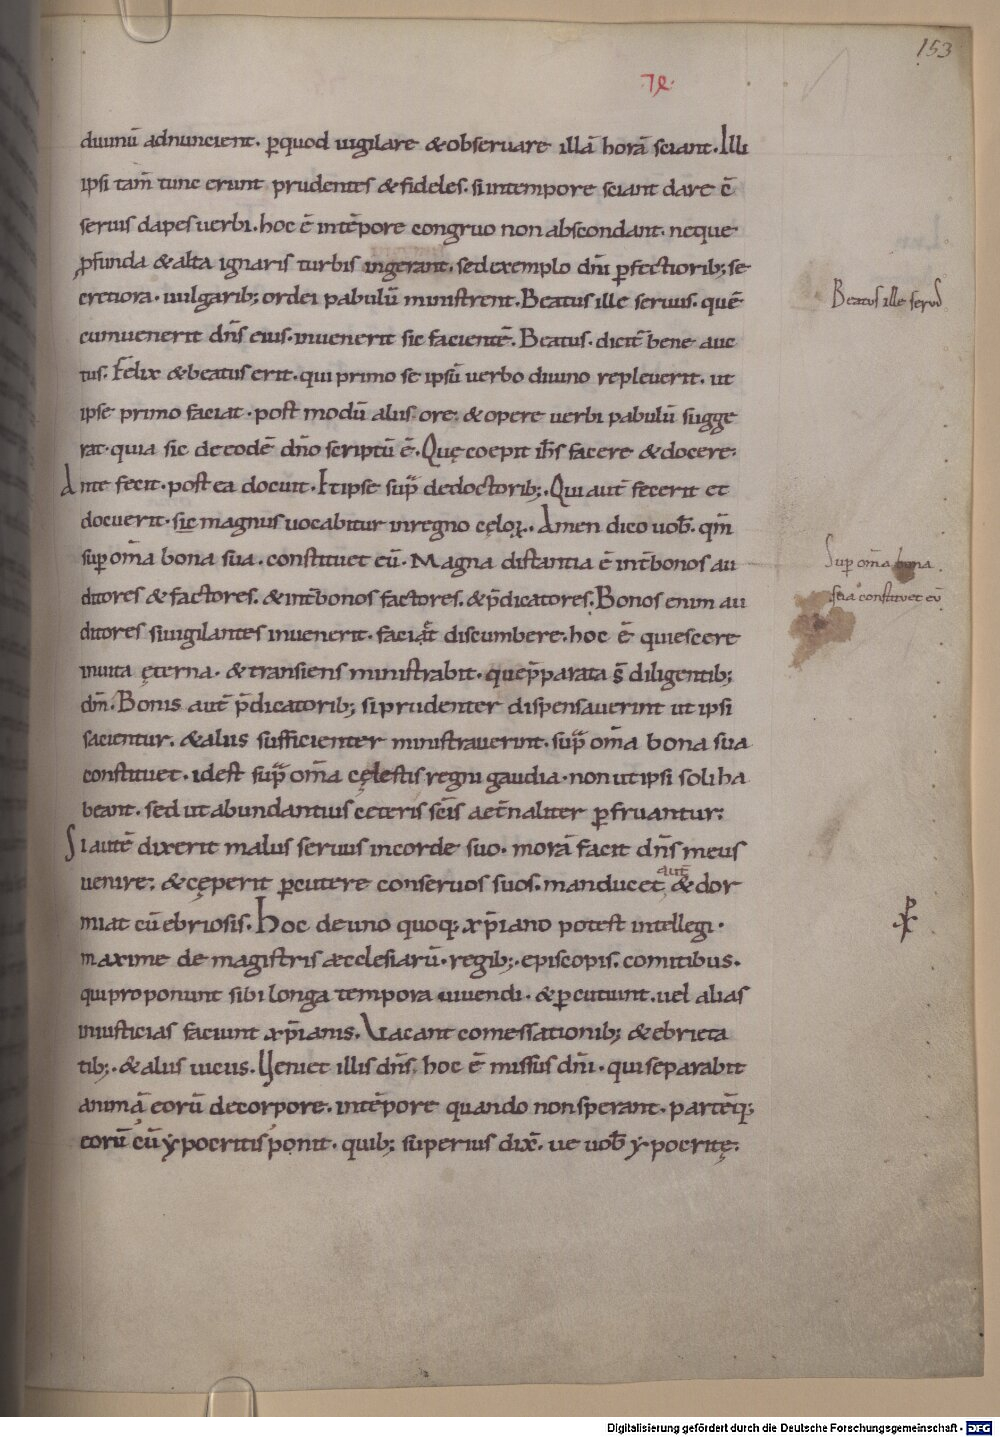 153
·⁊ę·
diuinū adnuncient. ꝑquod uigilare &obseruare illā horā sciant. Illi
ipsi tam̄ tunc erunt prudentes &fideles. si intempore sciant dare c̄
seruis dapes uerbi. hoc ē intēpore congruo non abscondant. neque
ꝓfunda &alta ignaris turbis ingerant. sed exemplo dn̄i ꝑfectiorib; se
cretiora. uulgarib; ordei pabulū ministrent. Beatus ille seruus. quē
Beatus ille seruus
cumuenerit dn̄s eius. inuenerit sic facientē. Beatus. dicit̄ bene auc
tus. Felix &beatus erit. qui primo se ipsū uerbo diuino repleuerit. ut
ipse primo faciat. post modū aliis ore. &opere uerbi pabulū sugge
rat. quia sic deeodē dn̄o scriptū ē. Quę coepit ih̄s facere &docere.
Ante fecit. post ea docuit. Et ipse sup̄ dedoctorib;. Qui aut̄ fecerit et
docuerit. sic magnus uocabitur inregno cęloꝝ. Amen dico uob̄. qm̄
suꝑ om̄a bona sua. constituet eū. Magna distantia ē int̄bonos au
Suꝑ om̄a bona
sua constituet eū
ditores &factores. &int̄bonos factores. &p̄dicatores. Bonos enim au
ditores siuigilantes inuenerit. faciat̄ discumbere. hoc ē quiescere
inuita ęterna. &transiens ministrabit. quep̄parata s̄ diligentib;
dm̄. Bonis aut̄ p̄dicatorib; si prudenter dispensauerint ut ipsi
sacientur. &aliis sufficienter ministrauerint. sup̄ om̄a bona sua
constituet. idest sup̄ om̄a cęlestis regni gaudia. non ut ipsi soli ha
beant. sed ut abundantius ceteris sc̄is aet̄naliter ꝑfruantur;
Si autē dixerit malus seruus incorde suo. morā facit dn̄s meus
uenire. &cęperit ꝑcutere conseruos suos. manducet aut̄ &dor
miat cū ebriosis. Hoc deuno quoq; xp̄iano potest intellegi.
maxime de magistris aecclesiarū. regib;. episcopis. comitibus.
qui proponunt sibi longa tempora uiuendi. &ꝑcutiunt. uel alias
iniusticias faciunt xp̄ianis. Uacant comessationib; &ebrieta
tib;. &aliis uiciis. Ueniet illis dn̄s. hoc ē missus dn̄i. qui separabit
animā eorū decorpore. intēpore quando non sperant. partēq;
eorū cū ypocritis ponit. quib; superius dix̄. ue uob̄ ypocritę.
Digitalisierung gefördert durch die Deutsche Forschungsgemeinschaft - DFG